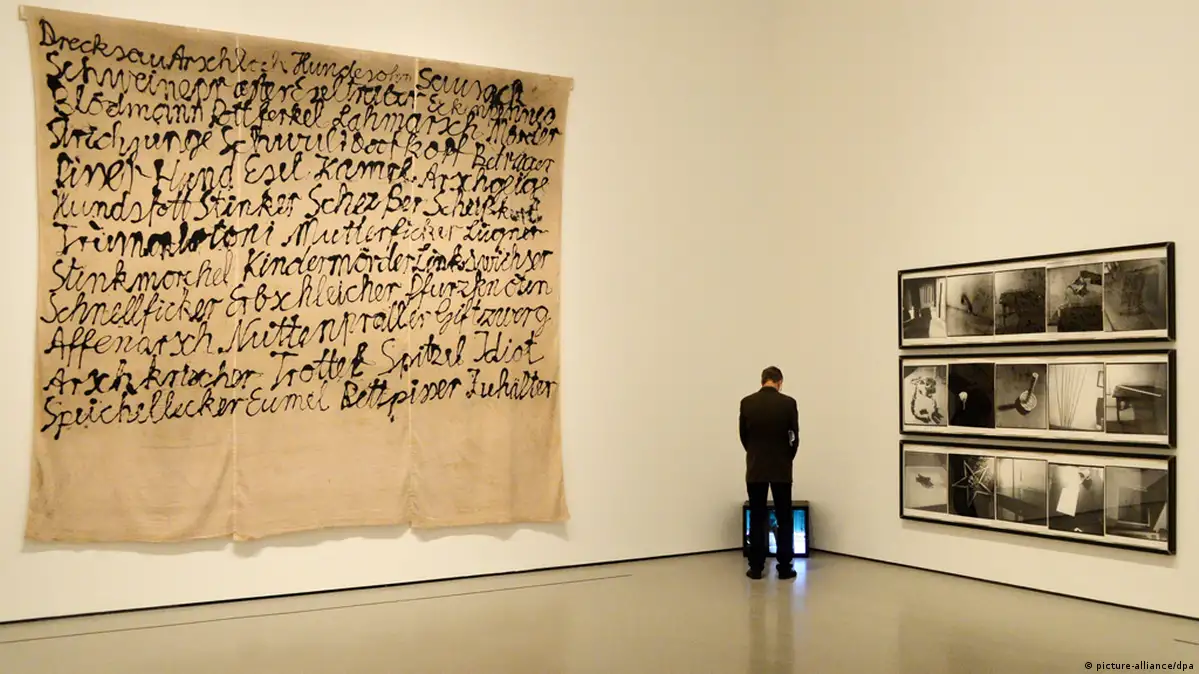 Drecksau Arschloch Hundesohn Sausack
Schweinepriester Eseltreiber
Blödmann Pottferkel Lahmarsch Mörder
Strichjunge Schwuli Doofkopf Betrüger
Hund Esel Kamel Arschgeige
Hundsfott Stinker Scheißkerl
Mutterficker Lügner
Stinkmorchel Kindermörder Linkswichser
Schnellficker Erbschleicher Pfurzknoten
Affenarsch Nuttenpraller Giftzwerg
Arschkriecher Trottel Spitzel Idiot
Speichellecker Eumel Bettpisser Zuhälter
© picture-alliance/dpa